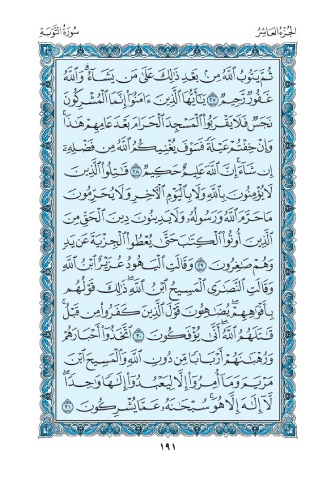 الجزء العاشر
سورة التوبة
ثُمَّ يَتُوبُ ٱللَّهُ مِنۢ بَعْدِ ذَٰلِكَ عَلَىٰ مَن يَشَآءُ ۗ وَٱللَّهُ
غَفُورٌ رَّحِيمٌ ٢٧ يَٰٓأَيُّهَا ٱلَّذِينَ ءَامَنُوٓا۟ إِنَّمَا ٱلْمُشْرِكُونَ
نَجَسٌ فَلَا يَقْرَبُوا۟ ٱلْمَسْجِدَ ٱلْحَرَامَ بَعْدَ عَامِهِمْ هَٰذَا ۚ
وَإِنْ خِفْتُمْ عَيْلَةً فَسَوْفَ يُغْنِيكُمُ ٱللَّهُ مِن فَضْلِهِۦٓ
إِن شَآءَ ۚ إِنَّ ٱللَّهَ عَلِيمٌ حَكِيمٌ ٢٨ قَٰتِلُوا۟ ٱلَّذِينَ
لَا يُؤْمِنُونَ بِٱللَّهِ وَلَا بِٱلْيَوْمِ ٱلْءَاخِرِ وَلَا يُحَرِّمُونَ
مَا حَرَّمَ ٱللَّهُ وَرَسُولُهُۥ وَلَا يَدِينُونَ دِينَ ٱلْحَقِّ مِنَ
ٱلَّذِينَ أُوتُوا۟ ٱلْكِتَٰبَ حَتَّىٰ يُعْطُوا۟ ٱلْجِزْيَةَ عَن يَدٍ
وَهُمْ صَٰغِرُونَ ٢٩ وَقَالَتِ ٱلْيَهُودُ عُزَيْرٌ ٱبْنُ ٱللَّهِ
وَقَالَتِ ٱلنَّصَٰرَى ٱلْمَسِيحُ ٱبْنُ ٱللَّهِ ۖ ذَٰلِكَ قَوْلُهُم
بِأَفْوَٰهِهِمْ ۖ يُضَٰهِـُٔونَ قَوْلَ ٱلَّذِينَ كَفَرُوا۟ مِن قَبْلُ ۚ
قَٰتَلَهُمُ ٱللَّهُ ۚ أَنَّىٰ يُؤْفَكُونَ ٣٠ ٱتَّخَذُوٓا۟ أَحْبَارَهُمْ
وَرُهْبَٰنَهُمْ أَرْبَابًا مِّن دُونِ ٱللَّهِ وَٱلْمَسِيحَ ٱبْنَ
مَرْيَمَ وَمَآ أُمِرُوٓا۟ إِلَّا لِيَعْبُدُوٓا۟ إِلَٰهًا وَٰحِدًا ۖ
لَّآ إِلَٰهَ إِلَّا هُوَ ۚ سُبْحَٰنَهُۥ عَمَّا يُشْرِكُونَ ٣١
١٩١